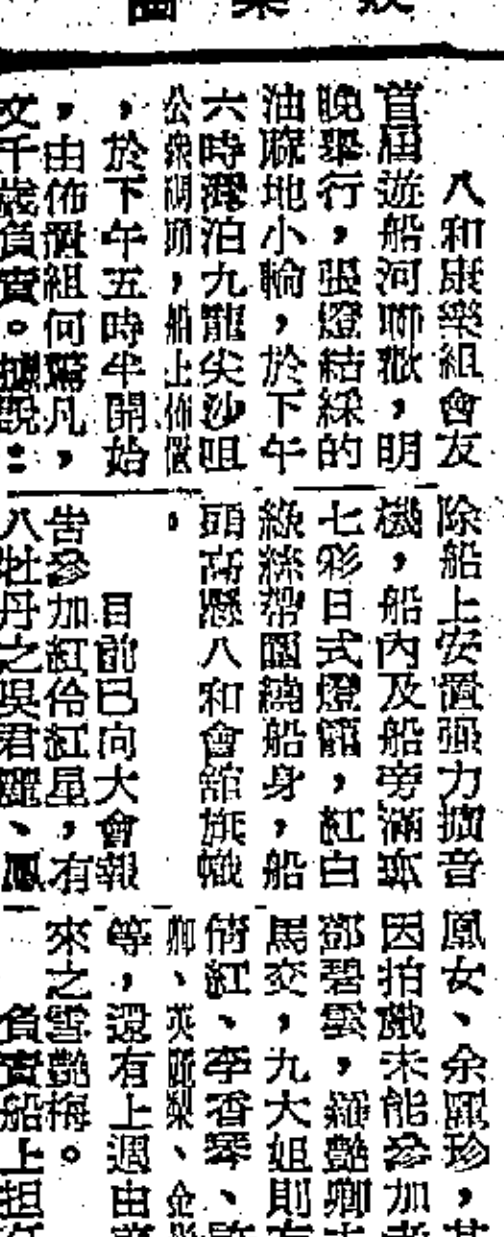 八和康樂組會友
首屆遊船河聯歡，明
晚舉行，張燈結綵的
油蔴地小輪，於下午
六時灣泊九龍尖沙咀
公衆碼頭，船上佈置
，於下午五時半開始
，由佈置組何驚凡，
文千歲負責。據說：
除船上安置强力擴音
機，船內及船旁滿
七彩日式燈籠，紅白
綠綵帶圍繞船身，船
頭高懸八和會舘旗幟
。
目前已向大會報
告參加紅伶紅星，有
八牡丹之吳君麗、鳳
凰女、余麗珍，
因拍戲未能參加
鄧碧雲，羅艷卿
馬交，九大姐則
倩紅、李香琴、
卿、英麗梨、金
等，還有上週由
來之雪艷梅。
負責船上担